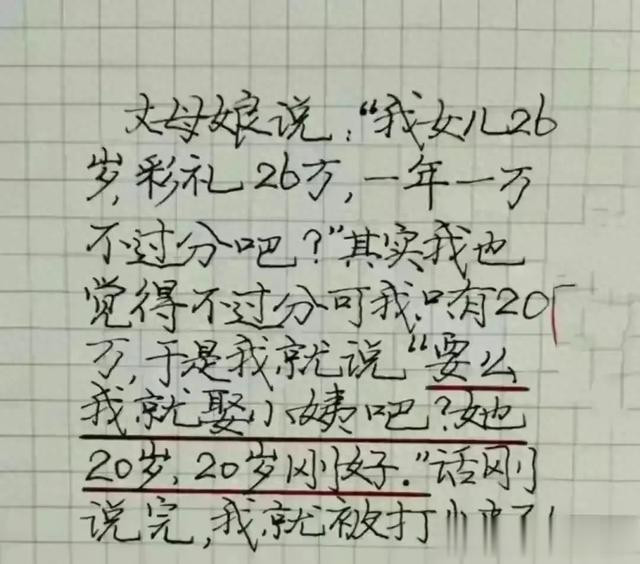 丈母娘说:“我女儿26
岁,彩礼26万,一年一万
不过分吧?”其实我也
觉得不过分可我只有20
万,于是我就说“要么
我就娶小姨吧?她也
20岁,20岁刚好.”话刚
说完,我就被打